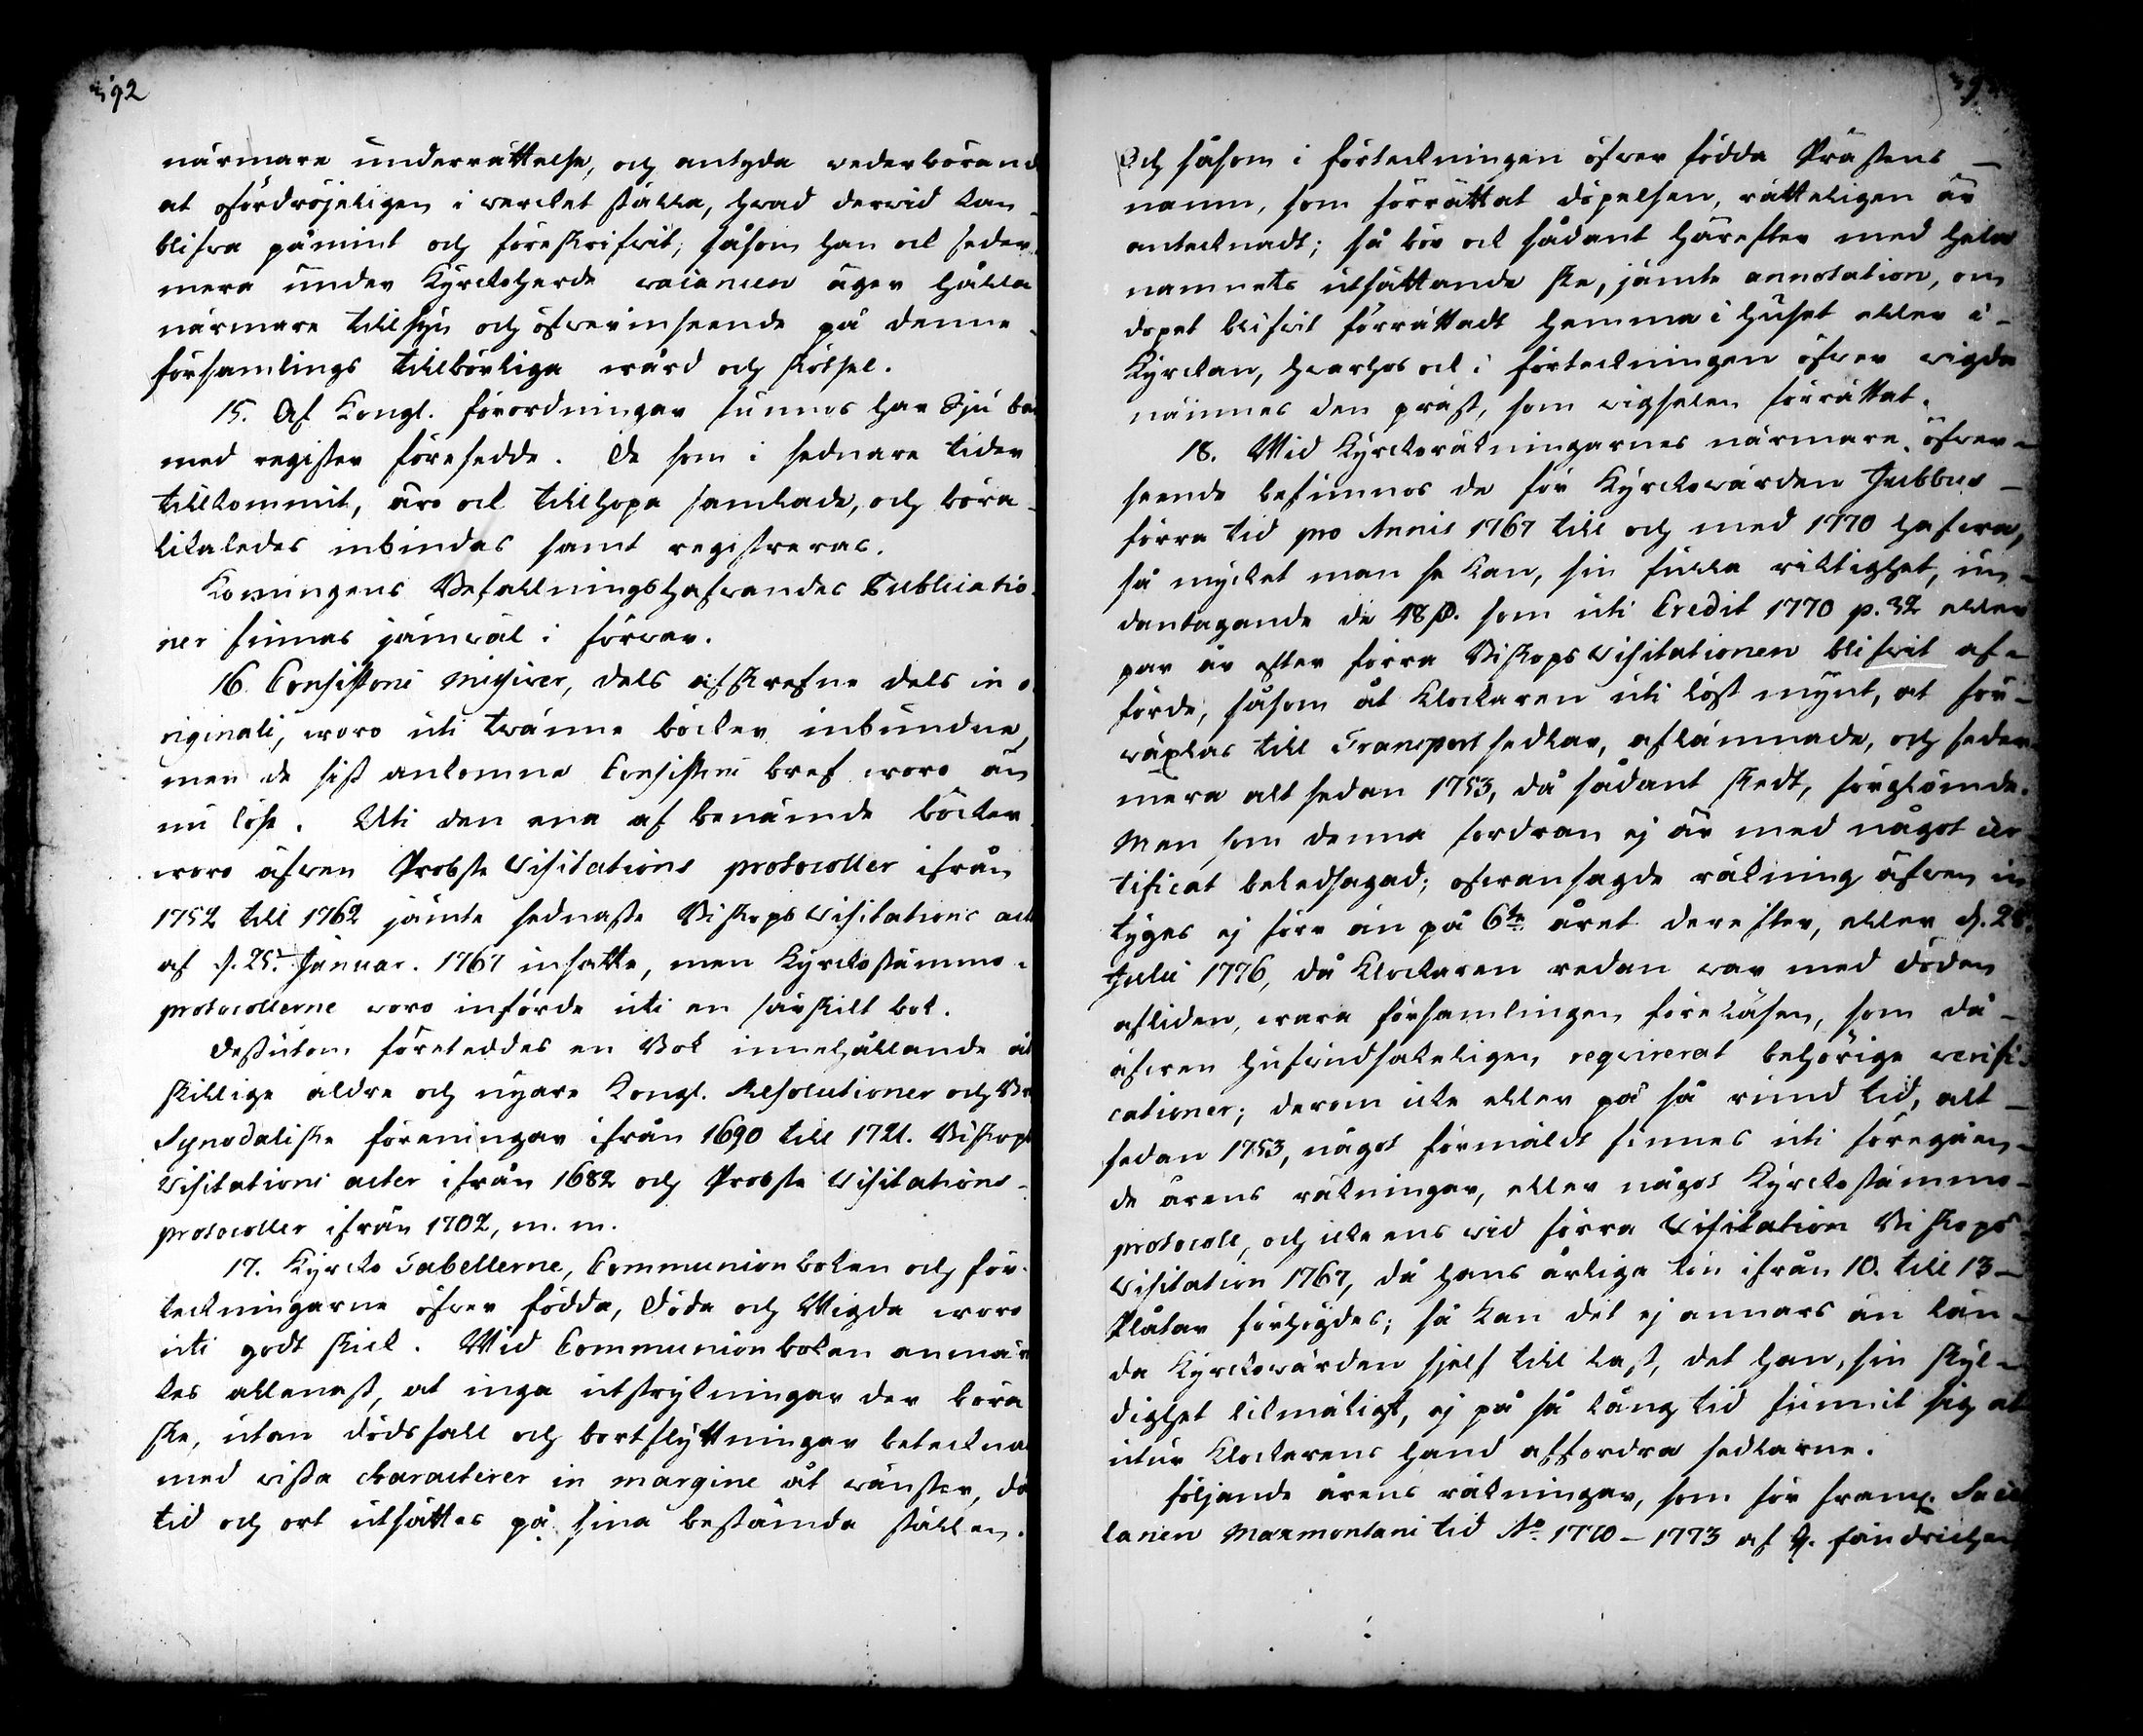 392
närmare underrättelse, och antyda wederbörand
at ofördröjeligen i wercket ställa, hwad derwid kan
blifwa påmint och föreskrifwit; såsom han ock seder-
mera under Kyrckoherde vacancen äger hålla
närmare tillsyn och öfwerinseende på denne
församlings tillbörliga wård och skötsel.
15. Af Kongl. förordningar funnos här Sju ba
med register försedde. De som i sednare tider
tillkommit, äro ock tillhopa samlade, och böra
likaledes inbindas samt registreras.
Konungens Befallningshafwandes Publicatio-
ner finnas jämwäl i förwar.
16. Consistorii missiver, dels afskrefne dels in o
riginali, woro uti twänne böcker inbundne,
men de sist ankomne Consistorii bref woro än
nu löse. Uti den ena af benämde böcker
woro äfwen Probste Visitations protocoller ifrån
1752 till 1762 jämte sednaste Biskops Visitations act
af d. 25. Januar. 1767 insatte, men Kyrckostämmo-
protocollerne woro införde uti en särskilt bok.
Dessutom företeddes en Bok innehållande åt
skillige äldre och nyare Kongl. Resolutioner och Br
Synodaliske föreningar ifrån 1690 till 1721. Biskops
Visitations acter ifrån 1682 och Probste Visitations-
protocoller ifrån 1702, m. m.
17. Kyrcko Tabellerne, Communionboken och för-
teckningarne öfwer födda, döda och Wigda woro
uti godt skick. Wid Communionboken anmär
ktes allenast, at inga utstrykningar der böra
ske, utan dödsfall och bortflyttningar beteckna
med wissa characterer in margine åt wänster, då
tid och ort utsättes på sina bestämda ställen.
Och såsom i förteckningen öfwer födda Prästens
namn, som förrättat döpelsen, rätteligen är
antecknadt; så bör ock sådant härefter med hela
namnets utsättande ske, jämte annotation, om
dopet blifwit förrättadt hemma i huset eller i
Kyrckan, hwarhos ock i förteckningen öfwer wigda
nämnes den präst, som wigselen förrättat.
18. Wid Kyrckoräkningarnes närmare öfwer-
seende befunnos de för Kyrckowärden Jubbus
förra tid pro Annis 1767 till och med 1770 hafwa,
så mycket man se kan, sin fulla riktighet, un-
dantagande de 48 pl. som uti Credit 1770 p. 32 eller
par är efter förra Biskops Visitationen blifwit af-
förde, såsom åt Klockaren uti löst mynt, at för-
wäxlas till Transport sedlar, aflämnade, och seder-
mera alt sedan 1753, då sådant skedt, förglömde.
Men som denna fordran ej är med något cer-
tificat beledsagad; ofwansagde räkning äfwen in
tyges ej förr än på 6te året derefter, eller d. 28
Julii 1776, då Klockaren redan war med döden
afliden, wara församlingen föreläsen, som då
äfwen hufwudsakeligen reqvirerat behörige verifi-
cationer; derom icke eller på så rund tid, alt
sedan 1753, något förmäldt finnes uti föregåen-
de årens räkningar, eller något Kyrckostämmo-
protocoll, och icke ens wid förra Visitation Biskops
Visitation 1767, då hans årliga lön ifrån 10. till 13
Plåtar förhögdes; så kan det ej annars än län-
da Kyrckowärden sjelf till last, det han, sin skyl-
dighet likmätigt, ej på så lång tid funnit sig at
utur Klockarens hand affordra sedlarne.
Följande årens räkningar, som för framl. Sacel
lanen Marmontani tid Ao 1770 – 1773 af H. Fändrichen